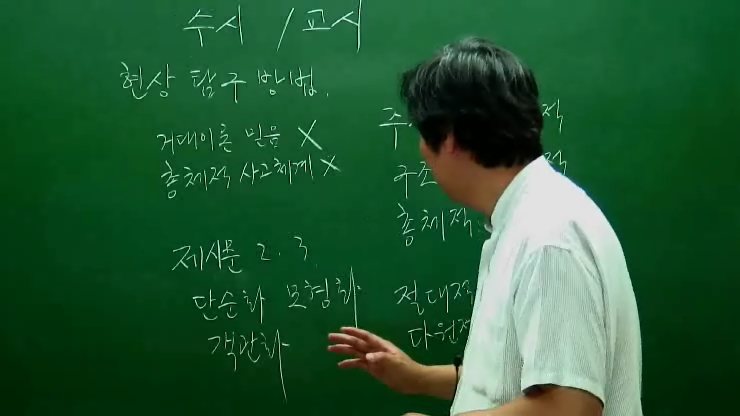 수시 / 교시
현상 탐구 방법.
거대이론 믿음 X
총체적 사고체계 X
제시문 2. 3.
단순화 모형화
객관화
주. 적
구조 적
총체적
절대적
다원적